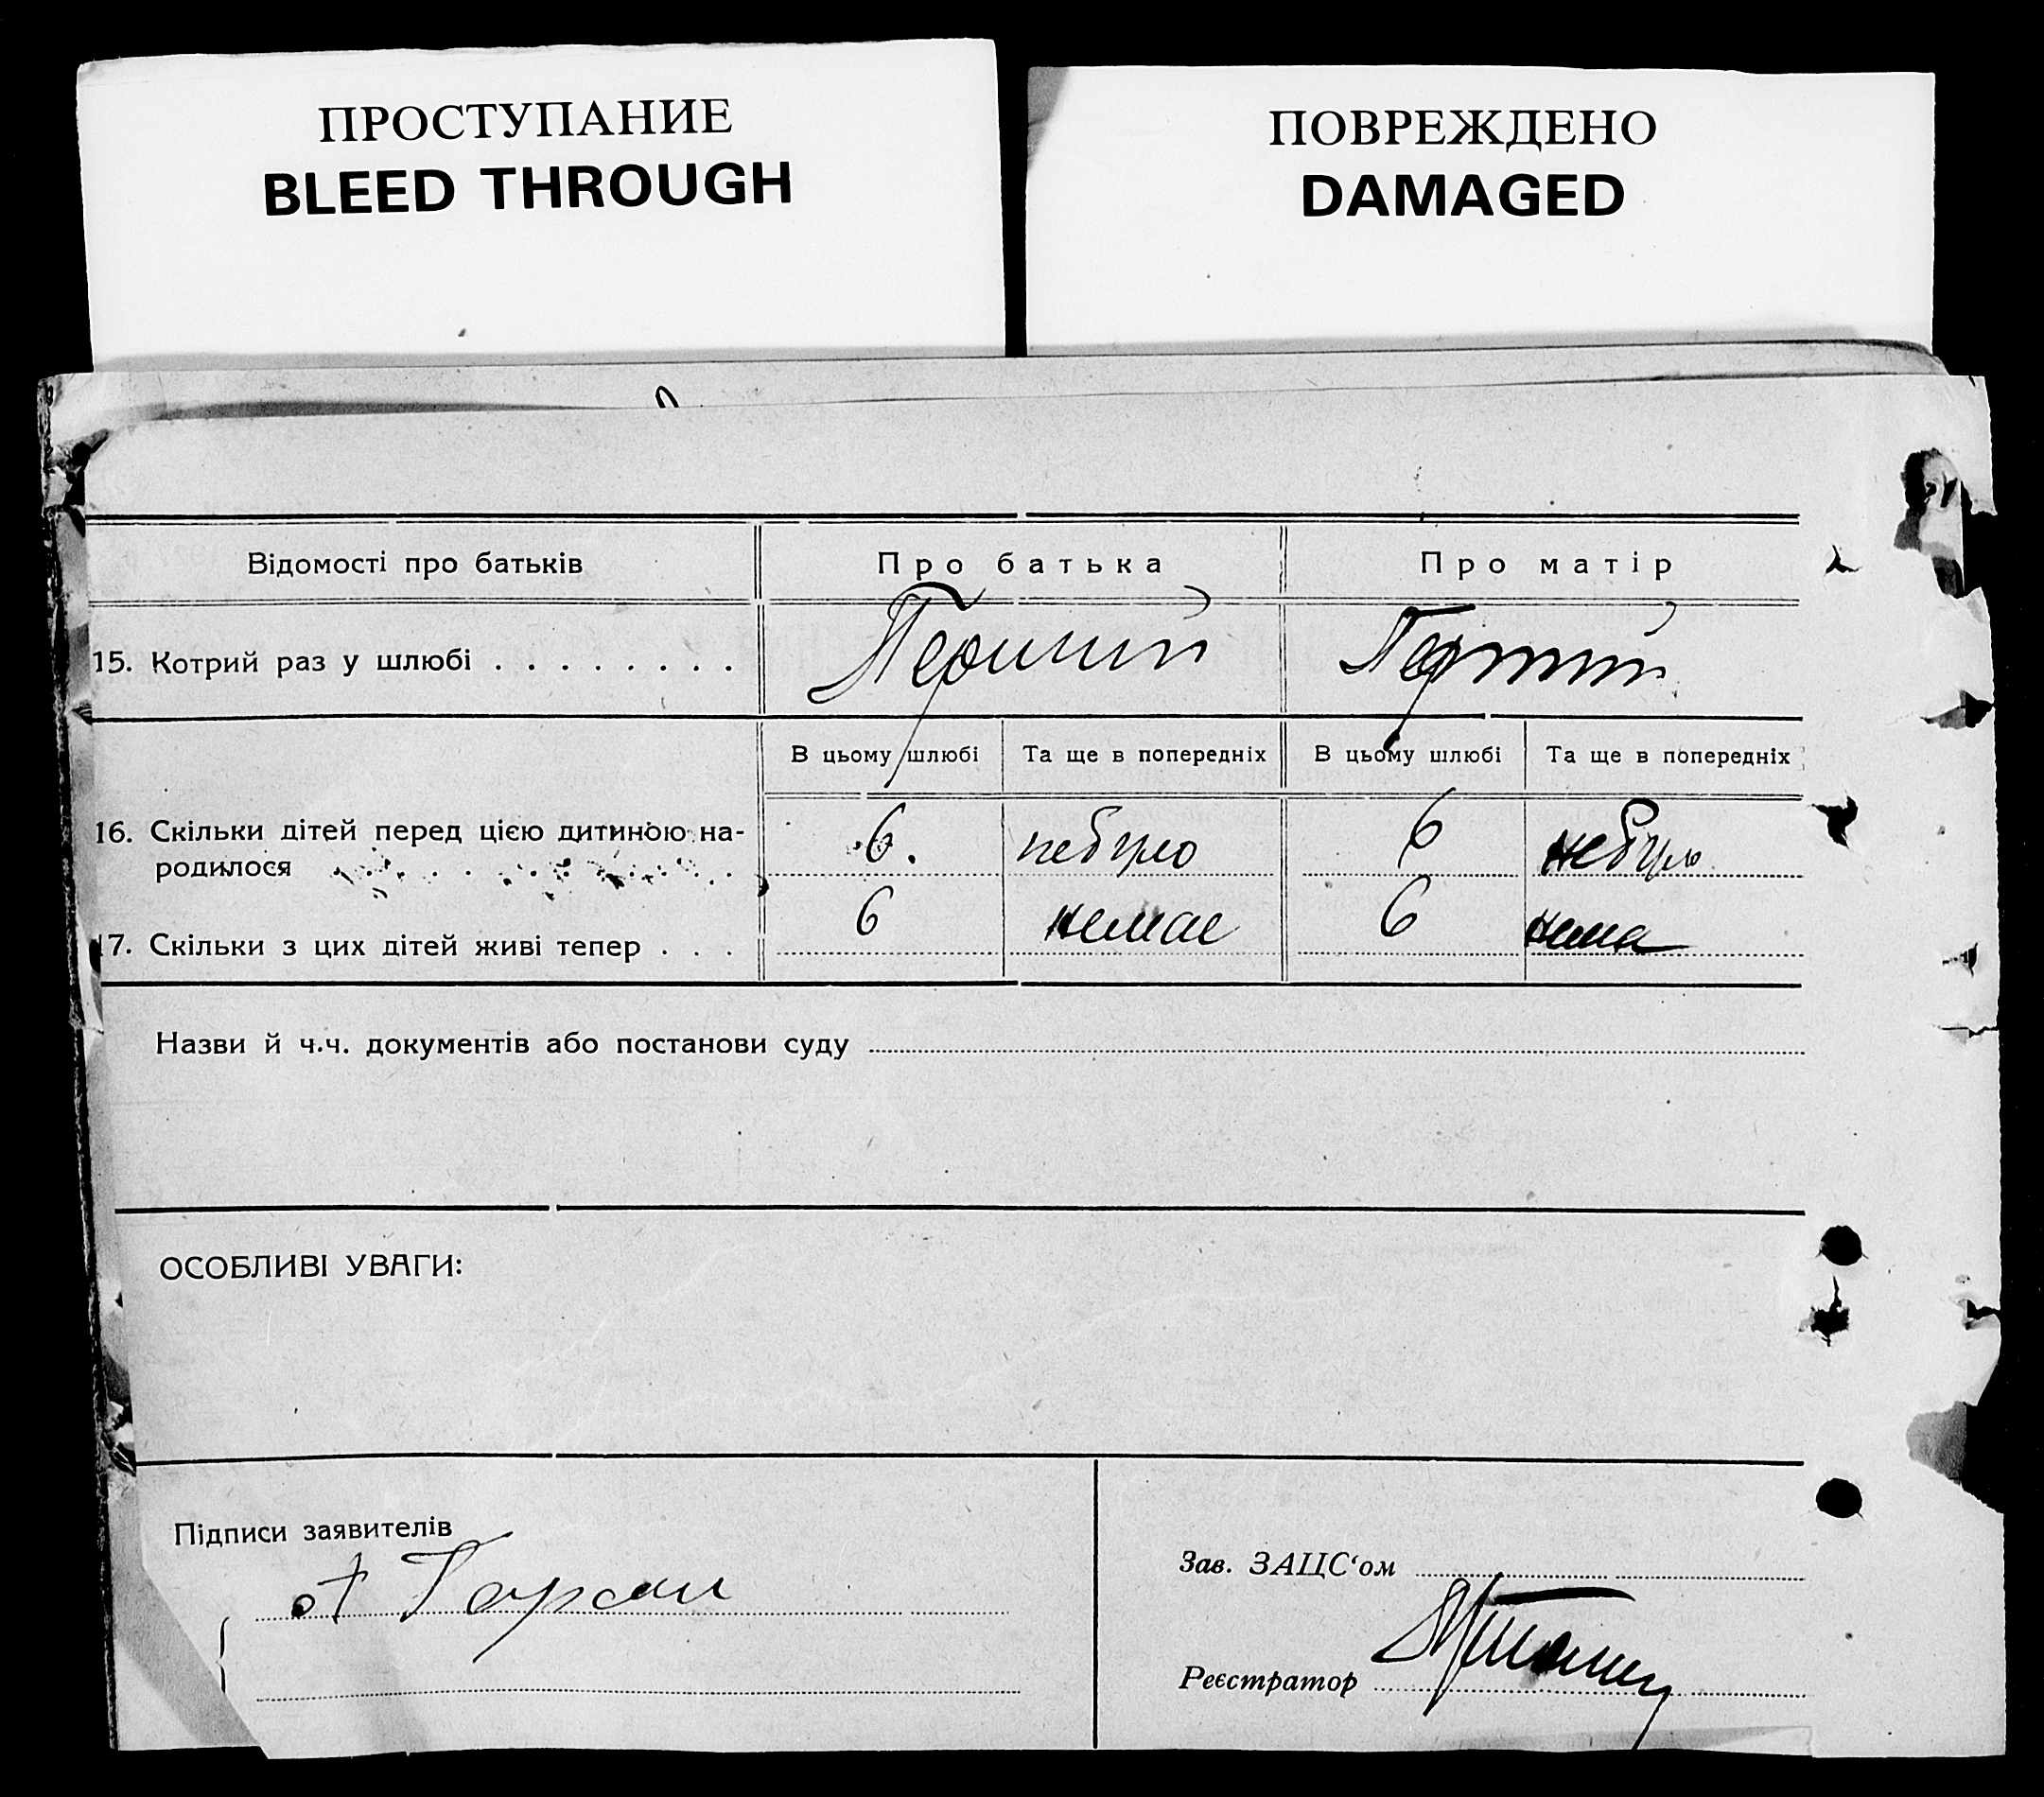 ПРОСТУПАНИЕ
BLEED THROUGH
ПОВРЕЖДЕНО
DAMAGED
Відомості про батьків Про батька Про матір
15. Котрий раз у шлюбі . . . . . . . . Перший Перший
В цьому шлюбі Та ще в попередніх В цьому шлюбі Та ще в попередніх
16. Скільки дітей перед цією дитиною на-
родилося 6. небуло 6 небуло
17. Скільки з цих дітей живі тепер . . . 6 немає 6 нема
Назви й ч.ч. документів або постанови суду
ОСОБЛИВІ УВАГИ:
Підписи заявителів
Зав. ЗАЦС‘ом
Реєстратор